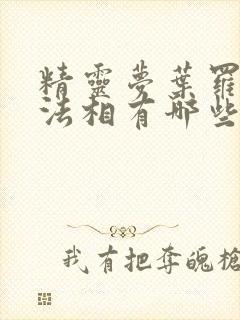 精靈夢葉羅
法相有哪些
我有把奪魄槍